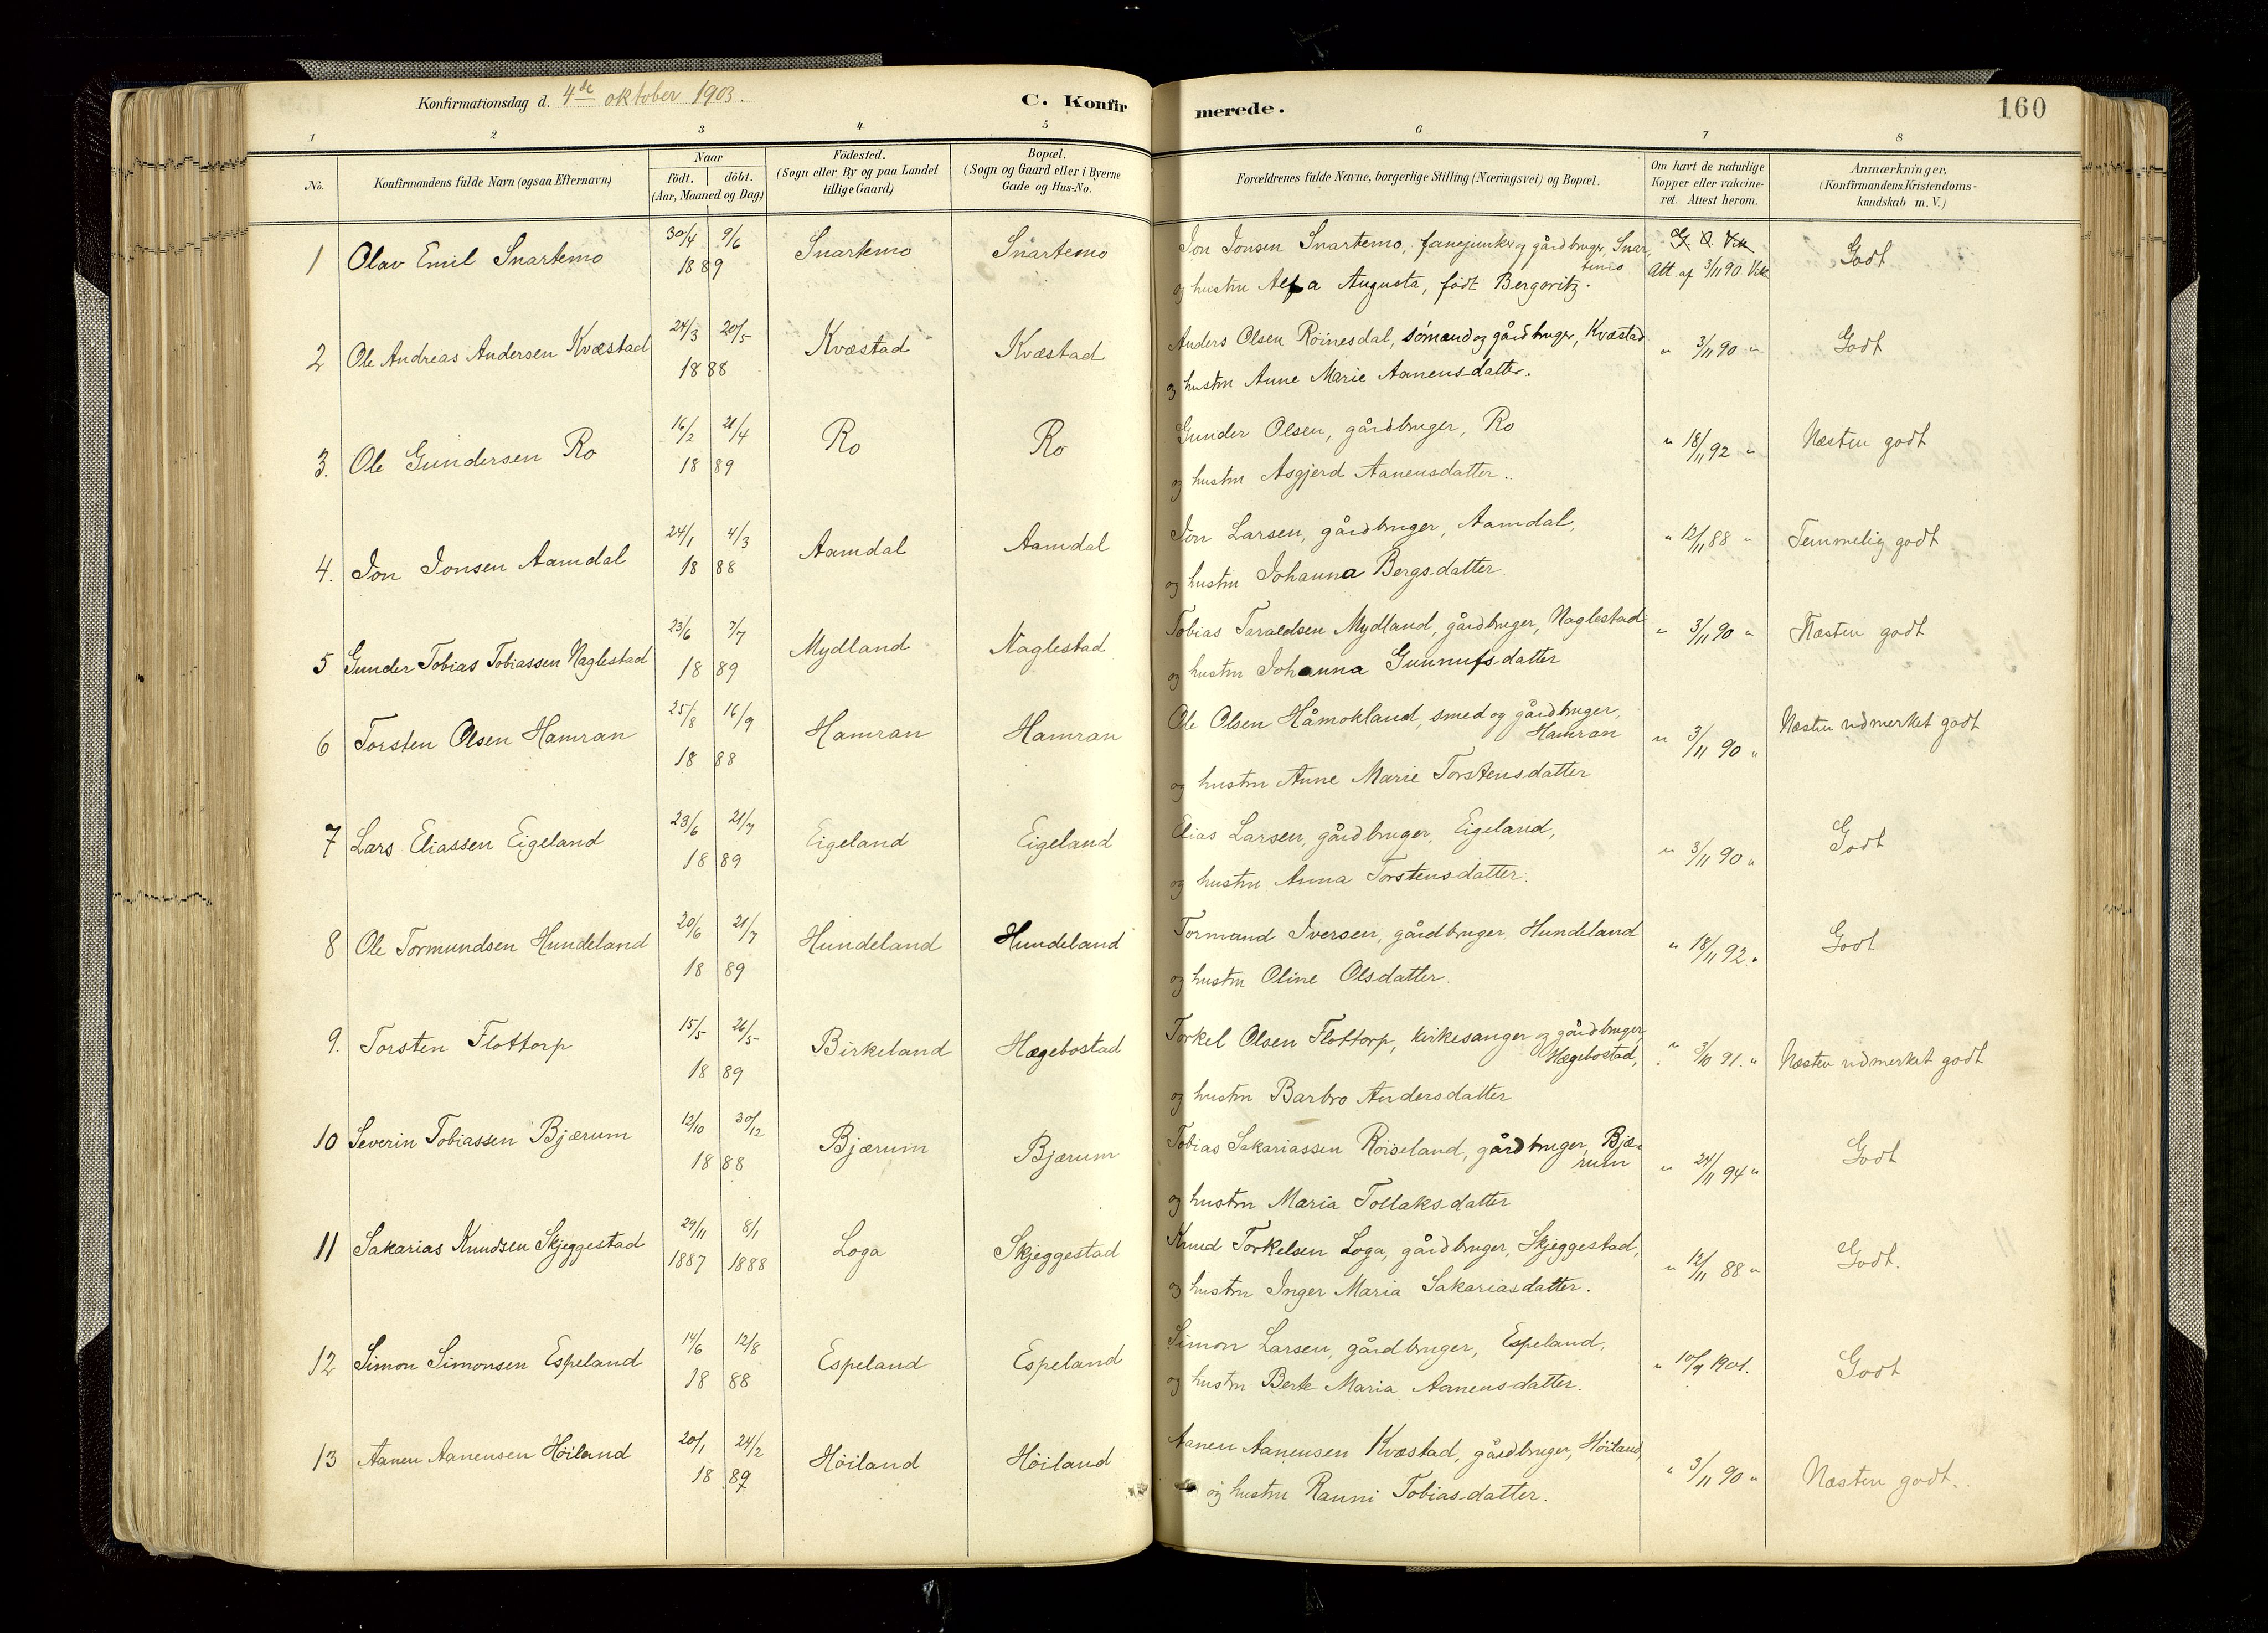 Konfirmationsdag d. 4de oktober 1903.
C. Konfirmerede.
160
1 2 3 4 5 6 7 8
No.
Konfirmandens fulde Navn (ogsaa Efternavn)
Naar
födt. döbt.
(Aar, Maaned og Dag)
Födested.
(Sogn eller By og paa Landet
tillige Gaard)
Bopæl.
(Sogn og Gaard eller i Byerne
Gade og Hus-No.
Forældrenes fulde Navne, borgerlige Stilling (Næringsvei) og Bopæl.
Om havt de naturlige
Kopper eller vakcine-
ret. Attest herom.
Anmærkninger.
(Konfirmandens Kristendoms-
kundskab m. V.)
1 Olav Emil Snartemo 30/4 9/6 Snartemo Snartemo Jon Jonsen Snartemo, fanejunker og gårdbruger, Snar
temo
1889 og hustru Alfa Augusta, født Bergwitz. Att. af 3/11 90 Vik Godt
2 Ole Andreas Andersen Kvæstad 24/3 20/5 Kvæstad Kvæstad Anders Olsen Röinesdal, sömand og gårdbruger, Kvæstad " 3/11 90 " Godt
1888 og hustru Anne Marie Aanensdatter.
3. Ole Gundersen Ro 16/2 21/4 Ro Ro Gunder Olsen, gårdbruger, Ro " 18/11 92 " Næsten godt
18 89 og hustru Asgjerd Aanensdatter.
4. Jon Jonsen Aamdal 24/1 4/3 Aamdal Aamdal Jon Larsen, gårdbruger, Aamdal, " 12/11 88 " Temmelig godt
18 88 og hustru Johanna Bergsdatter.
5 Gunder Tobias Tobiassen Naglestad 23/6 7/7 Mydland Naglestad Tobias Taraldsen Mydland, gårdbruger, Naglestad " 3/11 90 " Næsten godt
18 89 og hustru Johanna Gunnufsdatter
6 Torsten Olsen Hamran 25/8 16/9 Hamran Hamran Ole Olsen Håmokland, smed og gårdbruger,
Hamran " 3/11 90 " Næsten udmerket godt
18 88 og hustru Anne Marie Torstensdatter
7 Lars Eliassen Eigeland 23/6 21/7 Eigeland Eigeland Elias Larsen, gårdbruger, Eigeland, " 3/11 90 " Godt
18 89 og hustru Anna Torstensdatter.
8 Ole Tormundsen Hundeland 20/6 21/7 Hundeland Hundeland Tormand Iversen, gårdbruger, Hundeland " 18/11 92. Godt
18 89 og hustru Oline Olsdatter.
9. Torsten Flottorp 15/5 26/5 Birkeland Hægebostad Torkel Olsen Flottorp, kirkesanger og gårdbruger,
Hægebostad, " 3/10 91. " Næsten udmerket godt
18 89 og hustru Barbro Andersdatter
10 Severin Tobiassen Bjærum 12/10 30/12 Bjærum Bjærum Tobias Sakariassen Röiseland, gårdbruger, Bjæ-
rum " 24/11 94 " Godt
1888 og hustru Maria Tollaksdatter
11 Sakarias Knudsen Skjeggestad 29/11 8/1 Loga Skjeggestad Knud Torkelsen Loga, gårdbruger, Skjeggestad, " 12/11 88 " Godt.
1887 1888 og hustru Inger Maria Sakariasdatter.
12 Simon Simonsen Espeland 14/6 12/8 Espeland Espeland Simon Larsen, gårdbruger, Espeland, " 10/9 1901. Godt
18 88 og hustru Berte Maria Aanensdatter.
13 Aanen Aanensen Höiland 20/1 24/2 Höiland Höiland Aanen Aanensen Kvæstad, gårdbruger, Höiland, " 3/11 90 " Næsten godt.
18 89 og hustru Ranni Tobiasdatter.